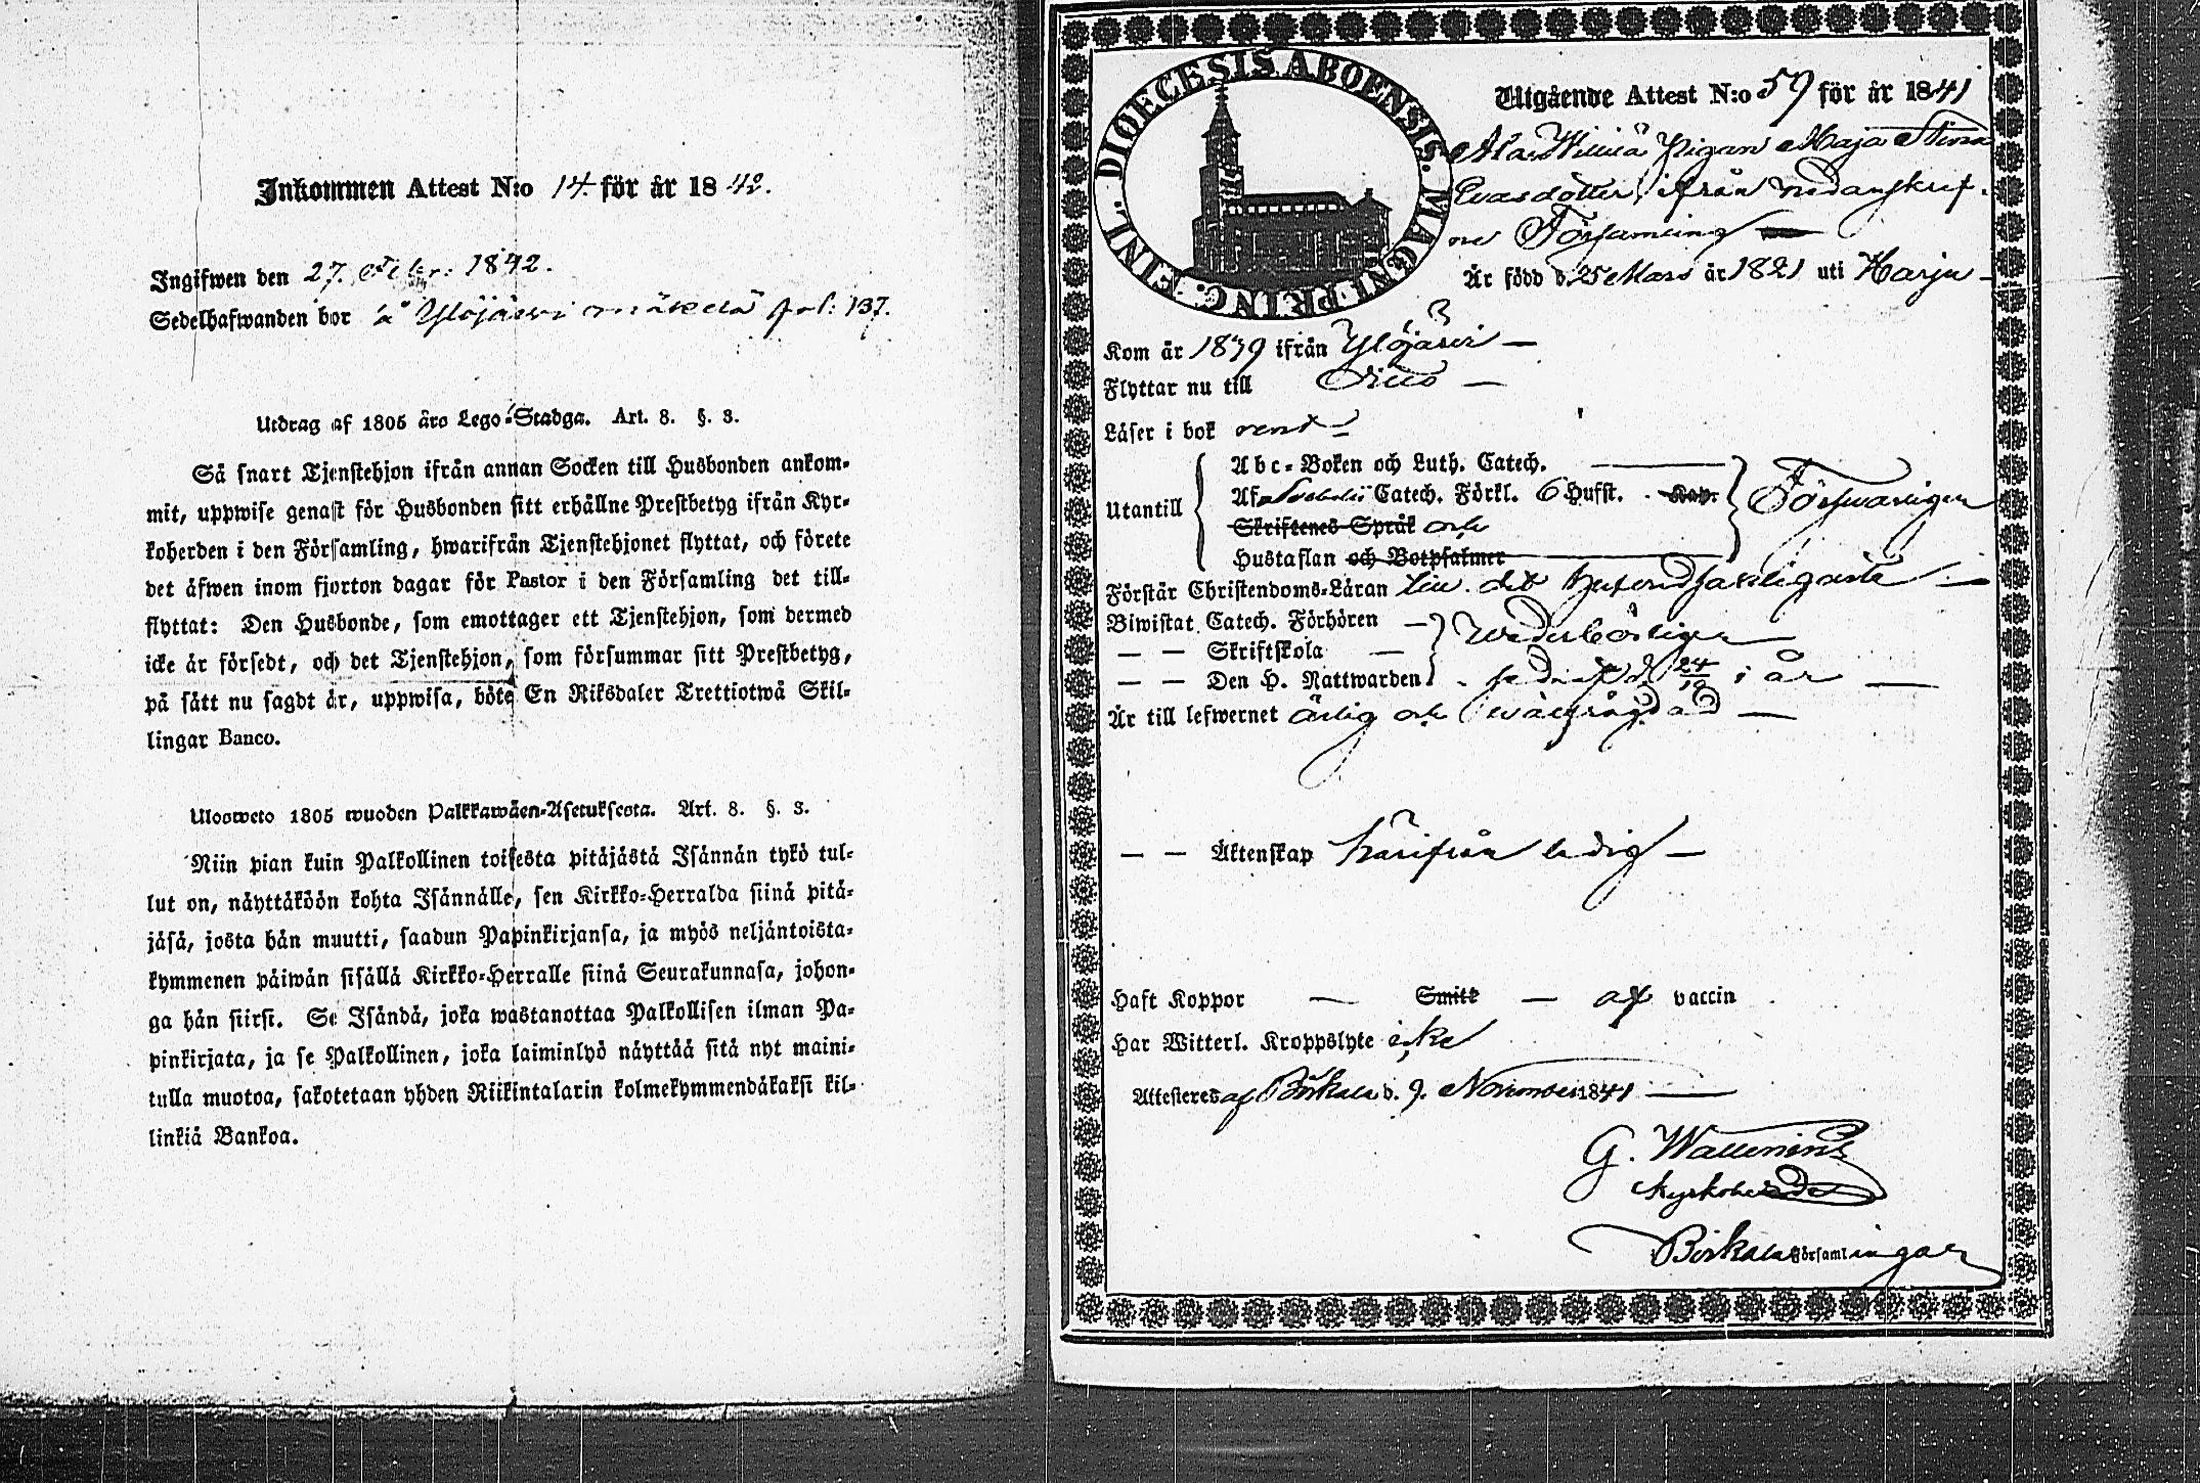 Inkommen Attest N:o 14 för år 1842.
Ingifwen den 27. Febr: 1842.
Sedelhafwanden bor å Ylöjärvi mäkelä fol: 137.
Utdrag af 1805 års Lego-Stadga. Art. 8. §. 3.
Så snart Tjenstehjon ifrån annan Socken till Husbonden ankom-
mit, uppwise genast för Husbonden sitt erhållne Prestbetyg ifrån Kyr-
koherden i den Församling, hwarifrån Tjenstehjonet flyttat, och förete
det äfwen inom fjorton dagar för Pastor i den Församling det till-
flyttat: Den Husbonde, som emottager ett Tjenstehjon, som dermed
icke är försedt, och det Tjenstehjon, som försummar sitt Prestbetyg,
på sätt nu sagdt är, uppwisa, böte En Riksdaler Trettiotwå Skil-
lingar Banco.
Ulosweto 1805 wuoden Palkkawäen-Asetuksesta. Art. 8. §. 3.
Niin pian kuin Palkollinen toisesta pitäjästä Isännän tykö tul-
lut on, näyttäköön kohta Isännälle, sen Kirkko-Herralda siinä pitä-
jäsä, josta hän muutti, saadun Papinkirjansa, ja myös neljäntoista-
kymmenen päiwän sisällä Kirkko-Herralle siinä Seurakunnasa, johon-
ga hän siirsi. Se Isändä, joka wastanottaa Palkollisen ilman Pa-
pinkirjata, ja se Palkollinen, joka laiminlyö näyttää sitä nyt maini-
tulla muotoa, sakotetaan yhden Riikintalarin kolmekymmendäkaksi kil-
linkiä Bankoa.
DIOECESIS ABOENSIS. MAGNI PRINC. FINL.
Utgående Attest N:o 59 för år 1841
Pigan Maja Stina
Evasdotter, ifrån nedanskref-
ne Församling
Är född d. 25 Mars år 1821 uti Harju
Kom år 1839 ifrån Ylöjärvi
Flyttar nu till Dito
Läser i bok rent
Utantill
Abc-Boken och Luth. Catech.
Af Svebelii Catech. Förkl. 6 Hufst. Kap.
Skriftenes Språk och
Hustaflan och Botpsalmer
Försvarligen
Förstår Christendoms-Läran till det hufvudsakligaste
Biwistat Catech. Förhören
— — Skriftskola
Wederbörligen
— — Den H. Nattwarden sednast d. 24/10 i år
Är till lefwernet ärlig och välfrägdad
— — Äktenskap härifrån ledig
Haft Koppor — Smitt — af vaccin
Har Witterl. Kroppslyte icke
Attesteres af Birkala d. 9. November 1841
G. Wallenius
Kyrkoherde
i Birkala Församlingar